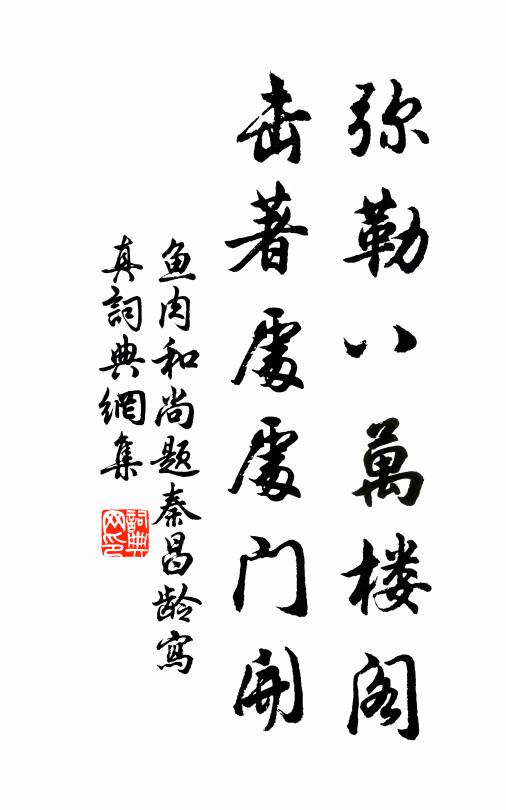 弥勒八萬楼阁
击著處處门開
鱼肉和尚题秦昌龄寫
真詞典網集
詞典网印